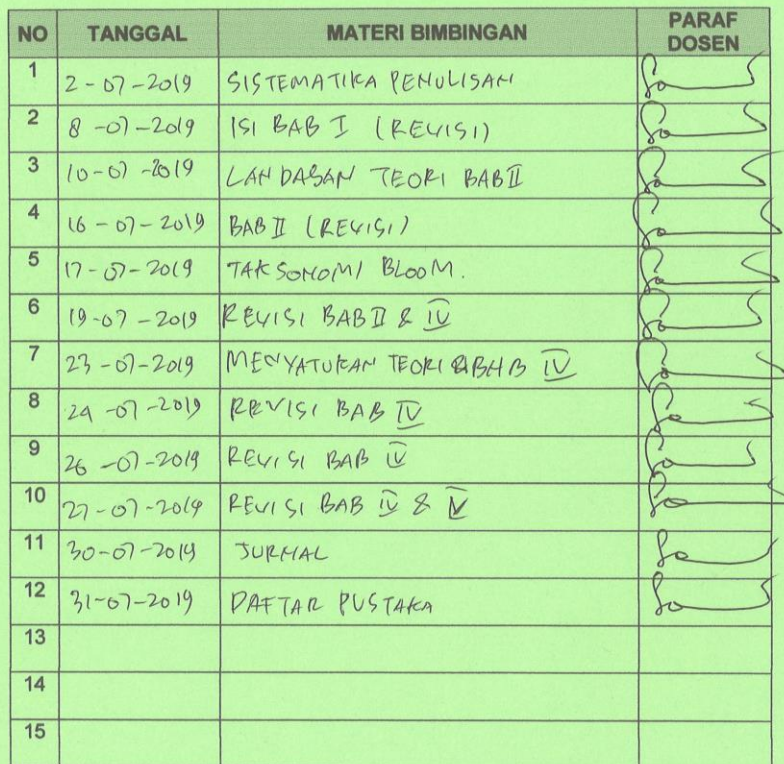 NO TANGGAL MATERI BIMBINGAN PARAF DOSEN
1 2-07-2019 SISTEMATIKA PENULISAN
2 8-07-2019 ISI BAB I (REVISI)
3 10-07-2019 LANDASAN TEORI BAB II
4 16-07-2019 BAB II (REVISI)
5 17-07-2019 TAKSONOMI BLOOM.
6 19-07-2019 REVISI BAB II & IV
7 23-07-2019 MENYATUKAN TEORI BAB IV
8 24-07-2019 REVISI BAB IV
9 26-07-2019 REVISI BAB IV
10 27-07-2019 REVISI BAB IV & V
11 30-07-2019 JURNAL
12 31-07-2019 DAFTAR PUSTAKA
13
14
15